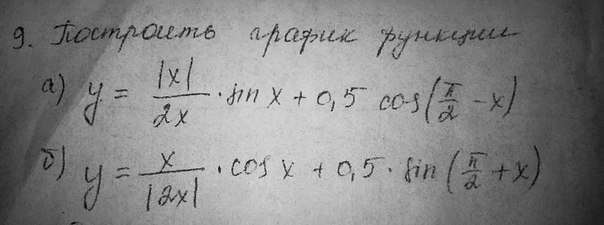 9. Построить график функции
а) y = |x|/2x · sin x + 0,5 cos(π/2 - x)
б) y = x/|2x| · cos x + 0,5 · sin(π/2 + x)